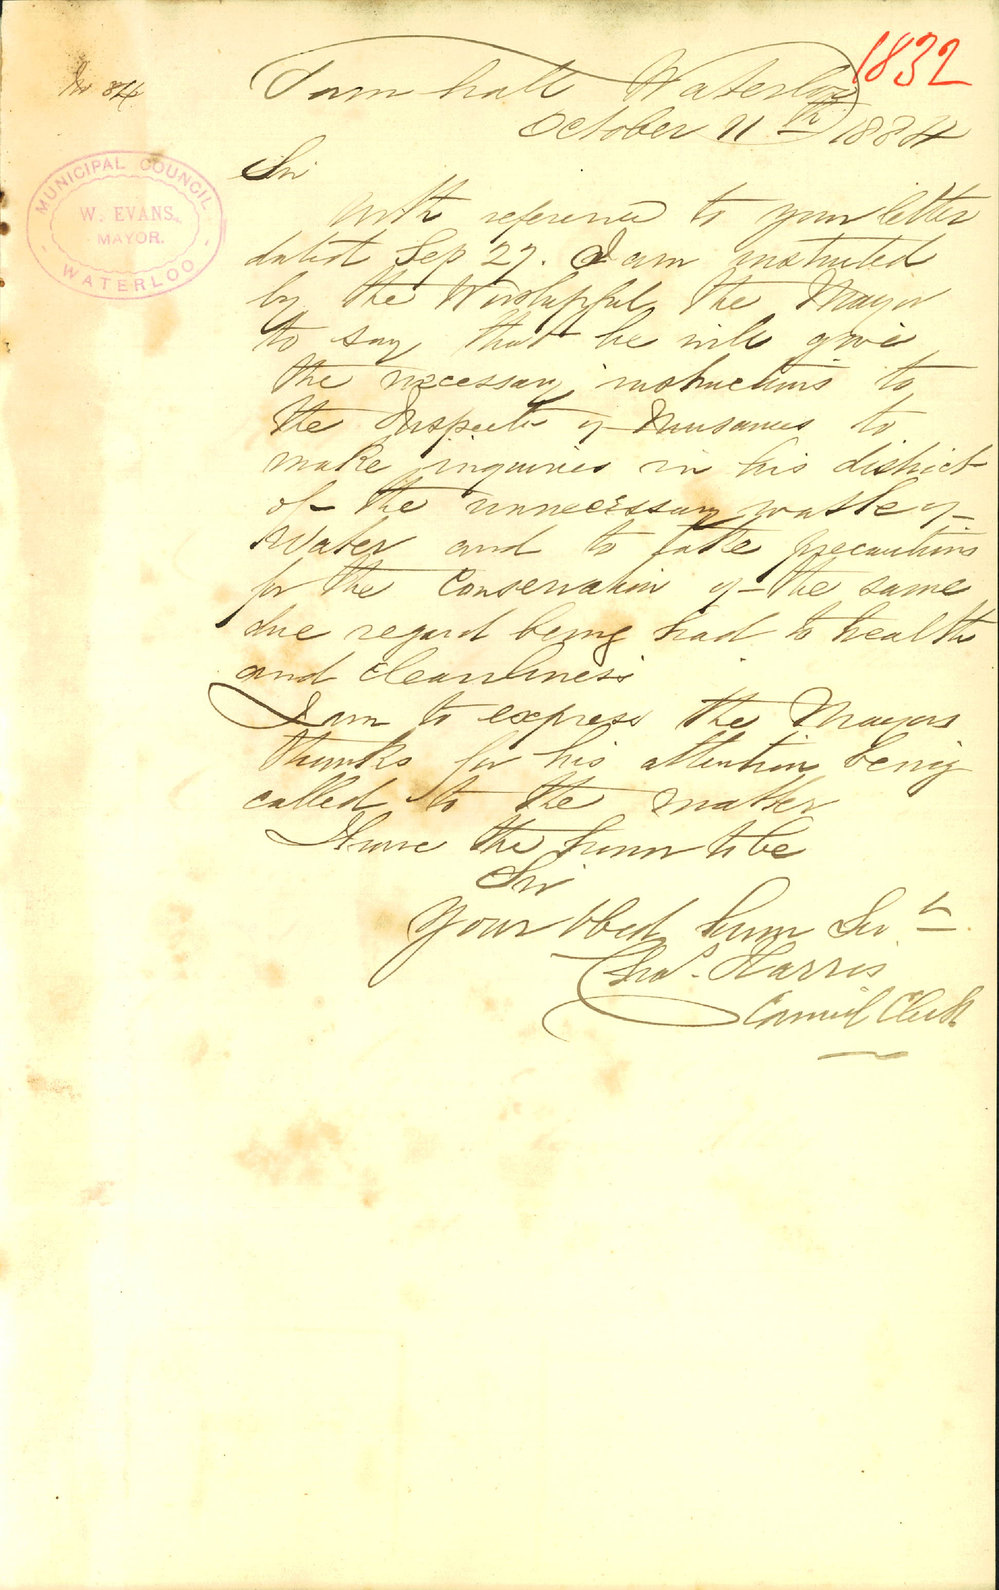 1832
No 84
Town hall Waterloo
October 11th 1884
MUNICIPAL COUNCIL
W. EVANS.
MAYOR.
WATERLOO
Sir
With reference to your letter
dated Sep 27. I am instructed
by the Worshipful the Mayor
to say that he will give
the necessary instructions to
the Inspector of Nuisances to
make inquiries in his district
of the unnecessary waste of
Water and to take precautions
for the Conservation of the same
due regard being had to health
and cleanliness
I am to express the Mayors
thanks for his attention being
called to the matter
I have the honor to be
Sir
Your Obed Hum Servt
Chas. Harris
Council Clerk